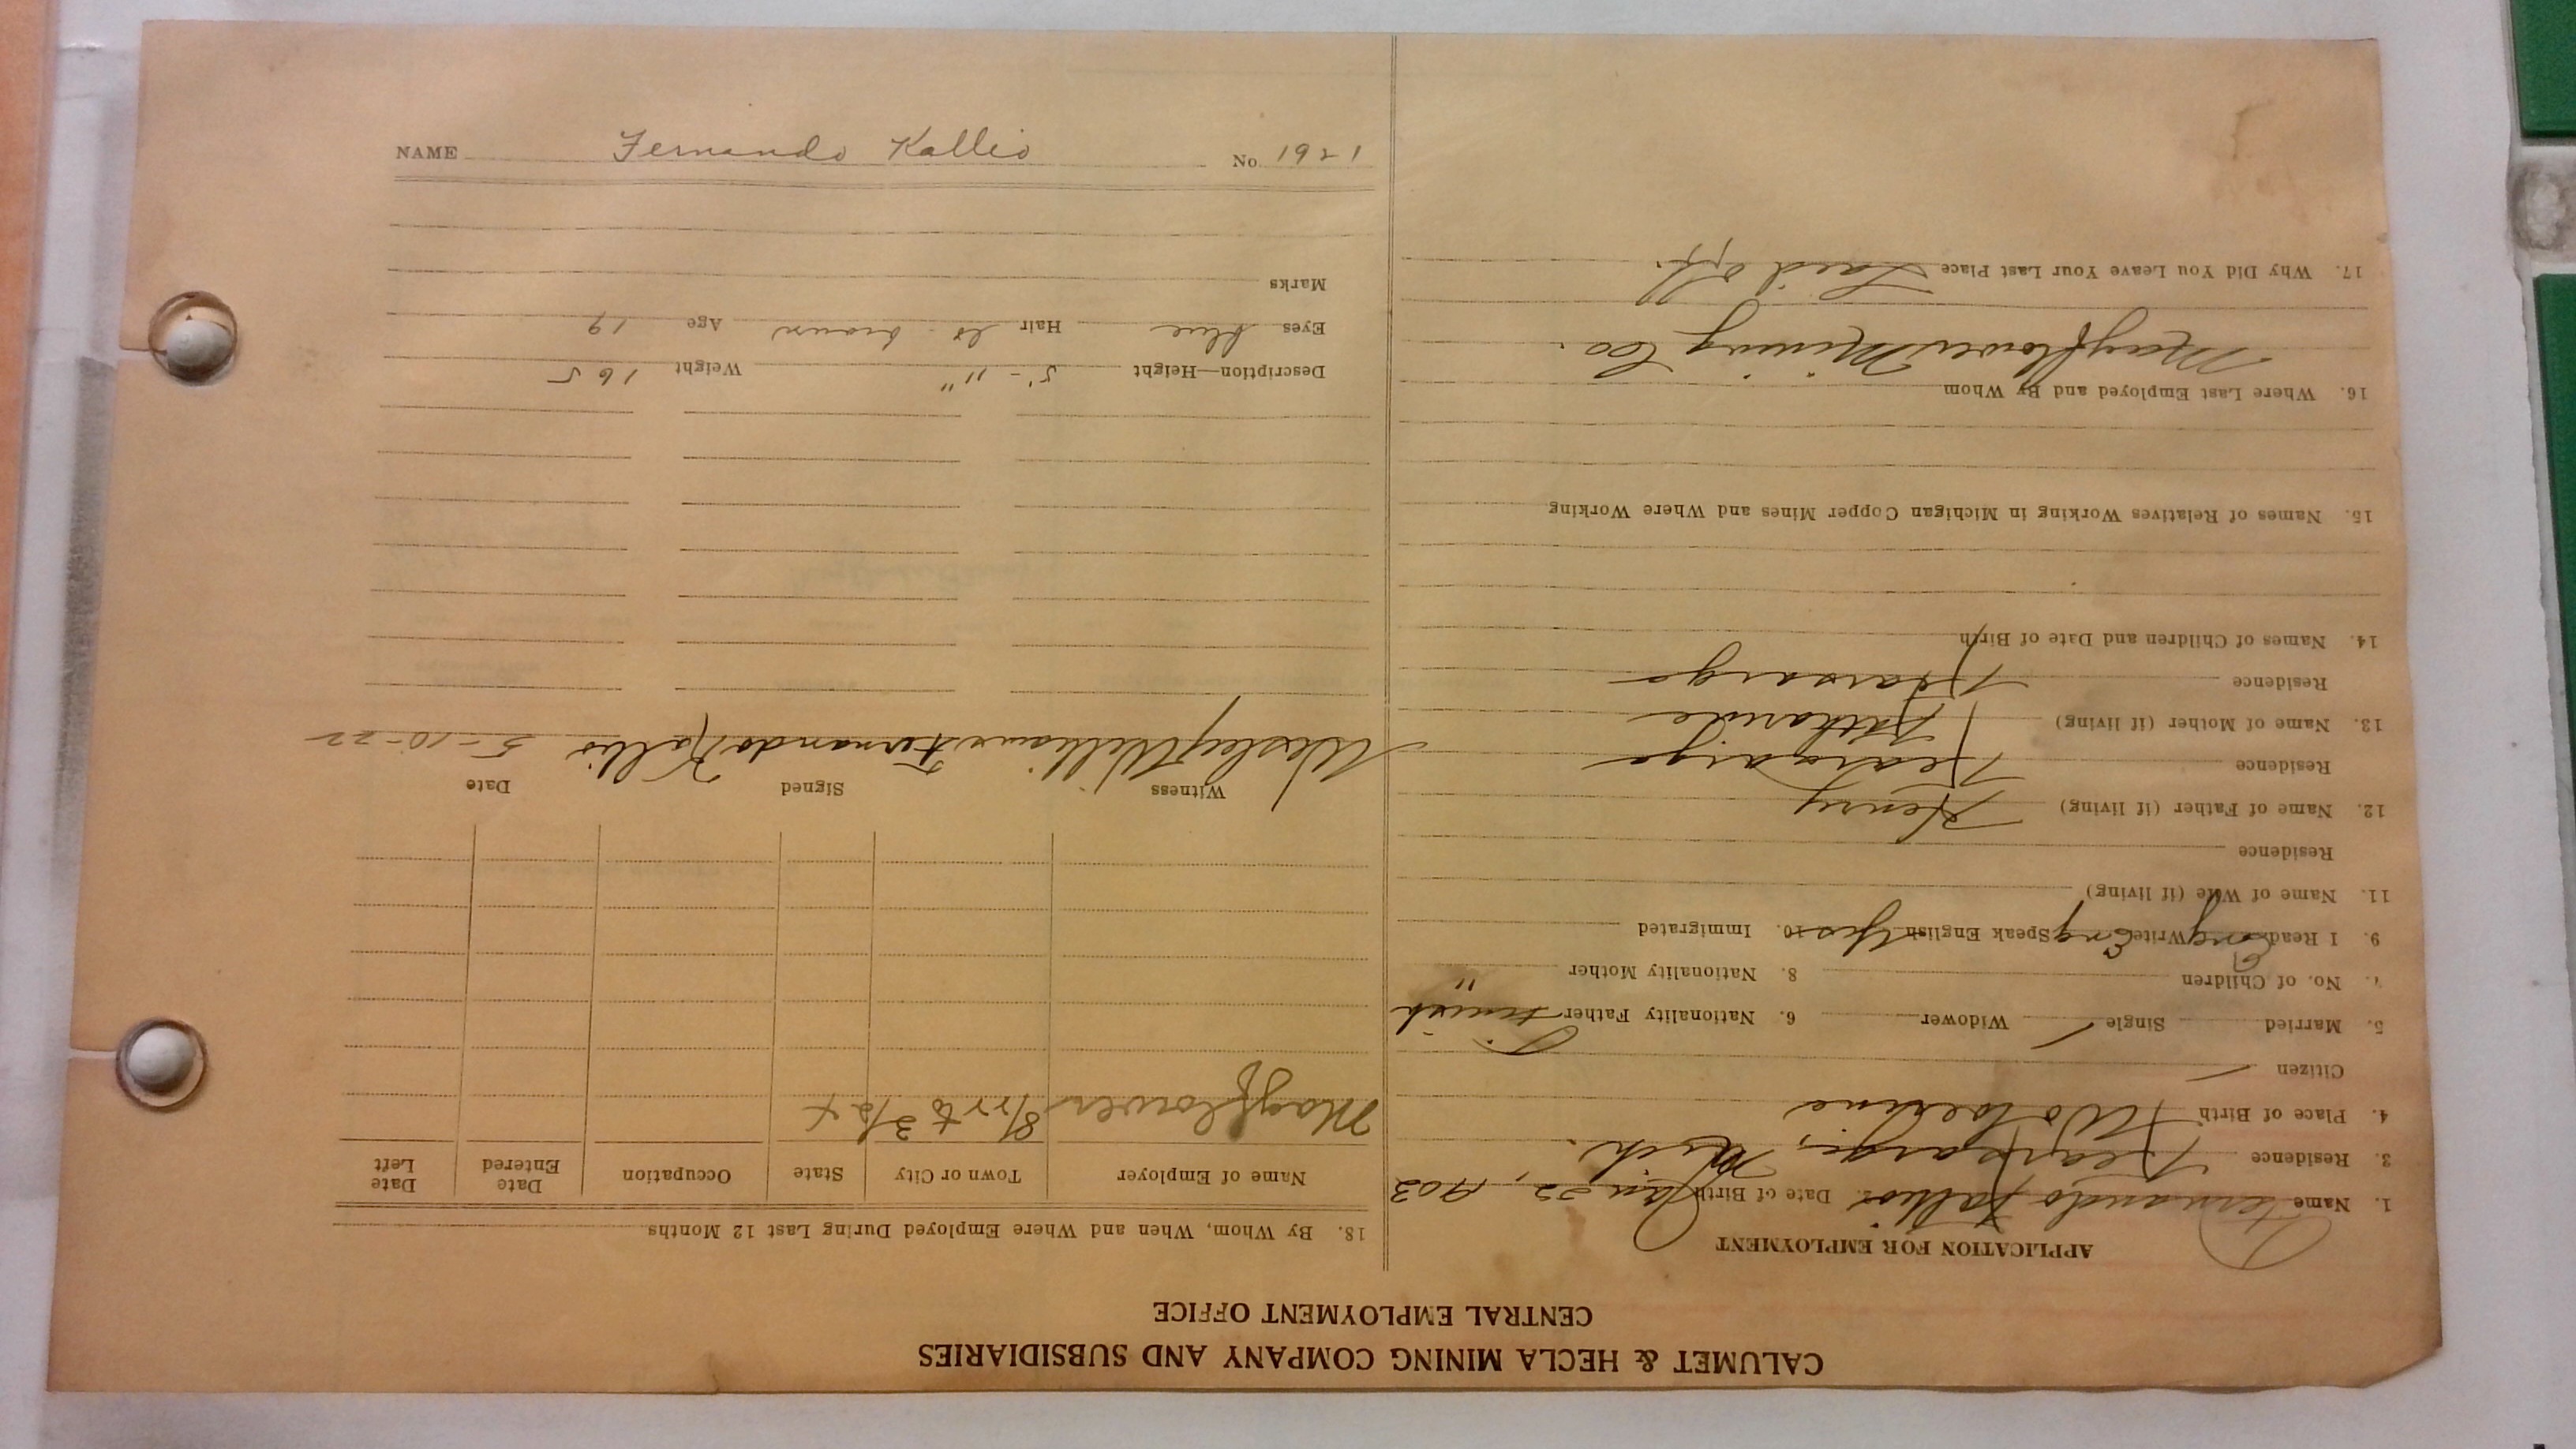 CALUMET & HECLA MINING COMPANY AND SUBSIDIARIES
CENTRAL EMPLOYMENT OFFICE
APPLICATION FOR EMPLOYMENT
1. Name Fernando Kallio 2. Date of Birth Jan 22, 1903
3. Residence Kearsarge, Mich.
4. Place of Birth Wolverine
Citizen /
5. Married Single / Widower 6. Nationality Father Finnish
7. No. of Children 8. Nationality Mother "
9. I Read Eng Write Eng Speak English Yes 10. Immigrated
11. Name of Wife (if living)
Residence
12. Name of Father (if living) Henry
Residence Kearsarge
13. Name of Mother (if living)
Residence Kearsarge
14. Names of Children and Date of Birth
15. Names of Relatives Working in Michigan Copper Mines and Where Working
16. Where Last Employed and By Whom
Mayflower Mining Co.
17. Why Did You Leave Your Last Place Laid off.
18. By Whom, When and Where Employed During Last 12 Months
Name of Employer Town or City State Occupation Date Entered Date Left
Mayflower
Witness Signed Date
Wesley Williams Fernando Kallio 5-10-22
Description—Height 5'-11" Weight 165
Eyes blue Hair lt brown Age 19
Marks
NAME Fernando Kallio No. 1921